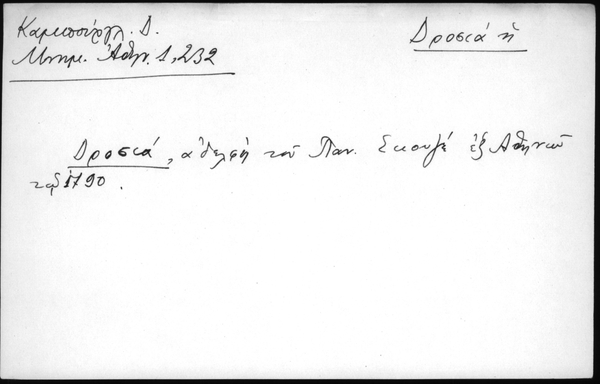 Καμπούρογλ. Δ.
Μνημ. Ἀθην. 1, 232
Δροσιά ἡ
Δροσιά, ἀδελφή τοῦ Παν. Σκουζέ ἐξ Ἀθηνῶν
τῷ 1790.